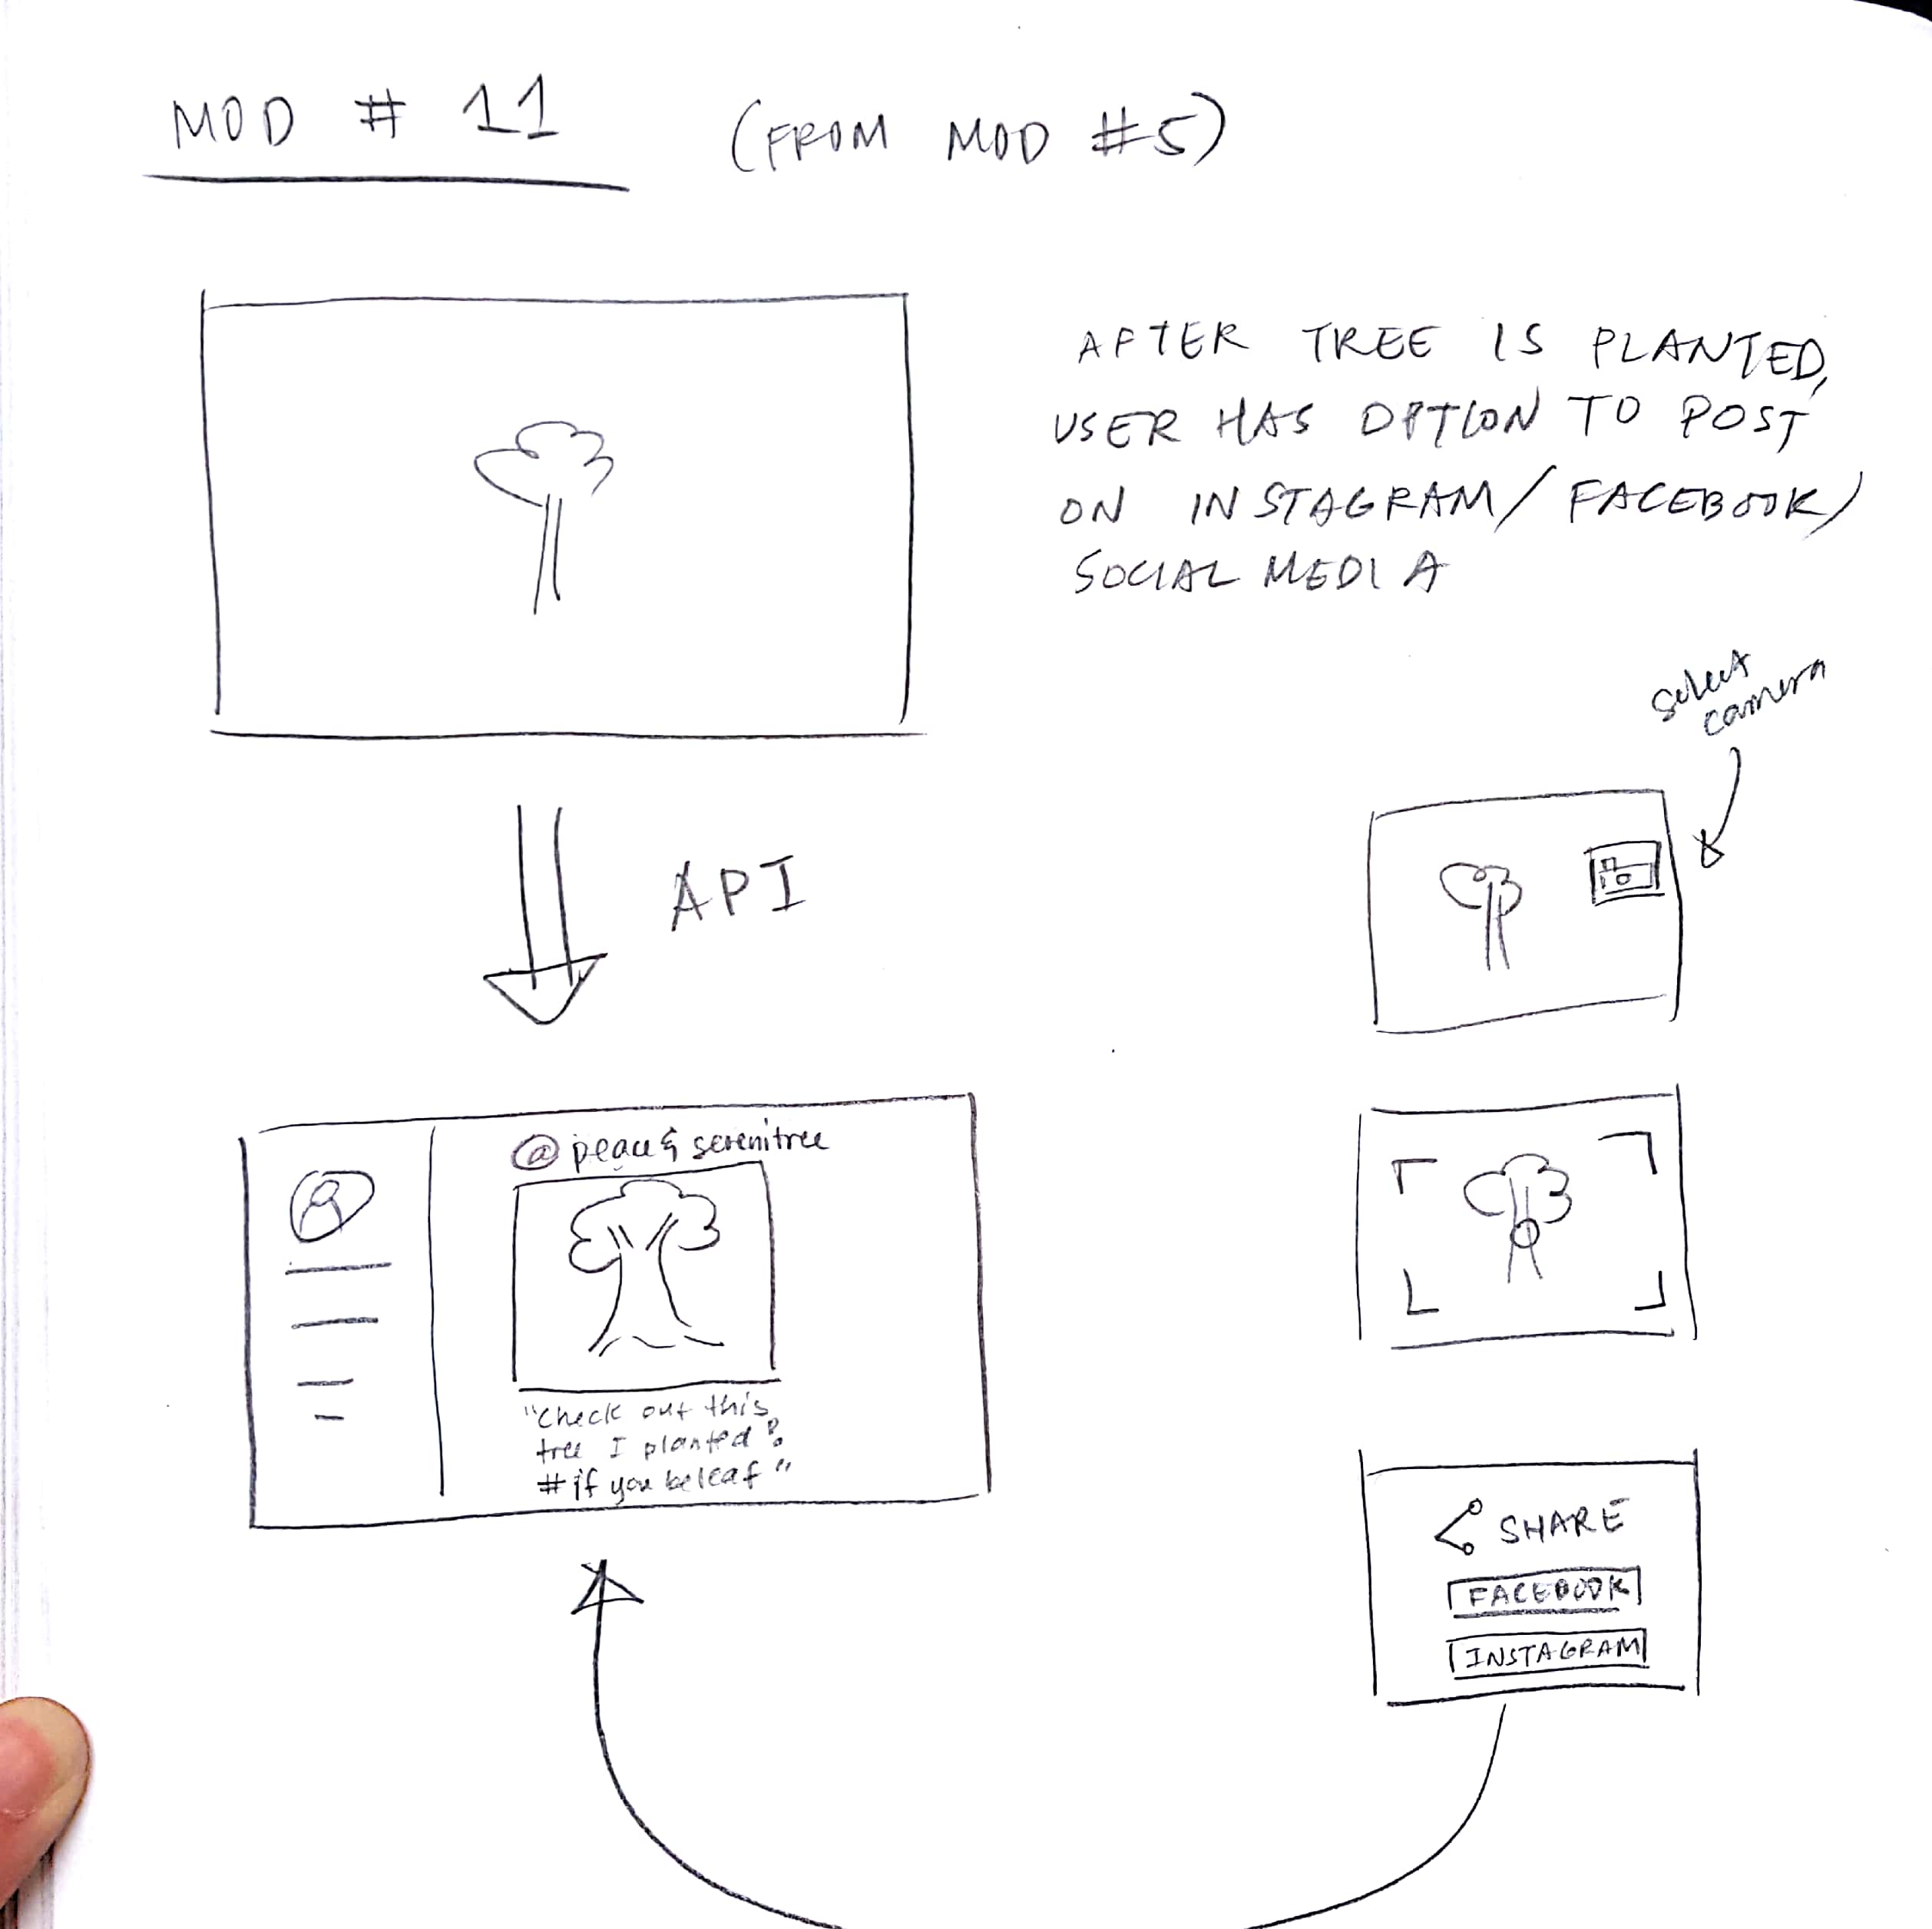 MOD # 11 (FROM MOD #5)
AFTER TREE IS PLANTED,
USER HAS OPTION TO POST
ON INSTAGRAM/FACEBOOK/
SOCIAL MEDIA
select
camera
API
@peace & serenitree
"Check out this
tree I planted!
#if you beleaf"
SHARE
FACEBOOK
INSTAGRAM